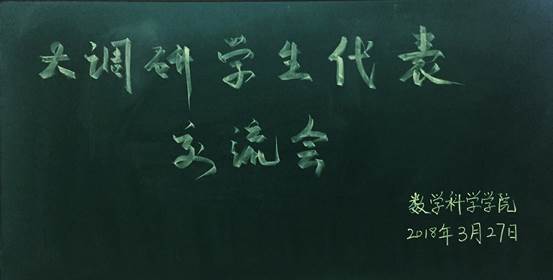 大调研学生代表
交流会
数学科学学院
2018年3月27日